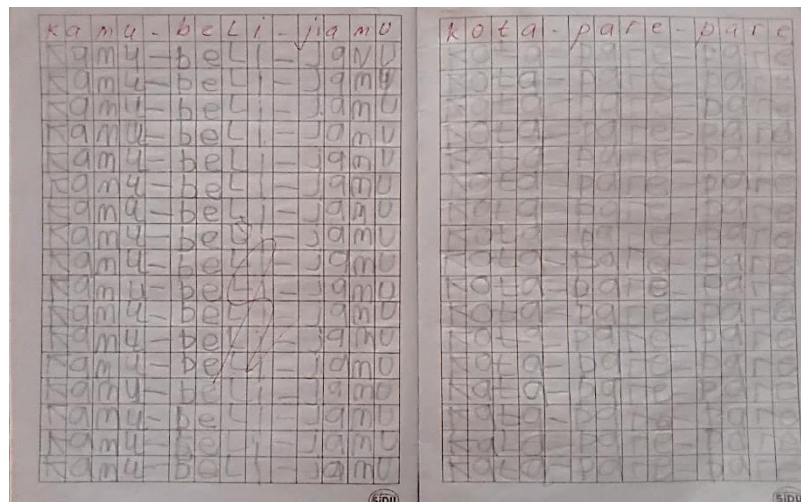 kamu-beli-jamu
Kamu-beLi-jaNU
Kamu-beLi-jamu
Kamu-beLi-jamU
Kamu-beLi-jamU
Kamu-beLi-jamU
Kamu-beLi-jamU
Kamu-beLi-jamU
Kamu-beLi-jamU
Kamu-beLi-jamU
Kamu-beLi-jamU
Kamu-beLi-jamU
Kamu-beLi-jamU
Kamu-beLi-jamU
Kamu-beLi-jamU
Kamu-beLi-jamU
Kamu-beLi-jamU
Kamu-beLi-jamU
SIDU
kota-pare-pare
Kota-pare-pare
Kota-pare-pare
Kota-pare-pare
Kota-pare-pare
Kota-pare-pare
Kota-pare-pare
Kota-pare-pare
Kota-pare-pare
Kota-pare-pare
Kota-pare-pare
Kota-pare-pare
Kota-pare-pare
Kota-pare-pare
Kota-pare-pare
Kota-pare-pare
Kota-pare-pare
Kota-pare-pare
SIDU